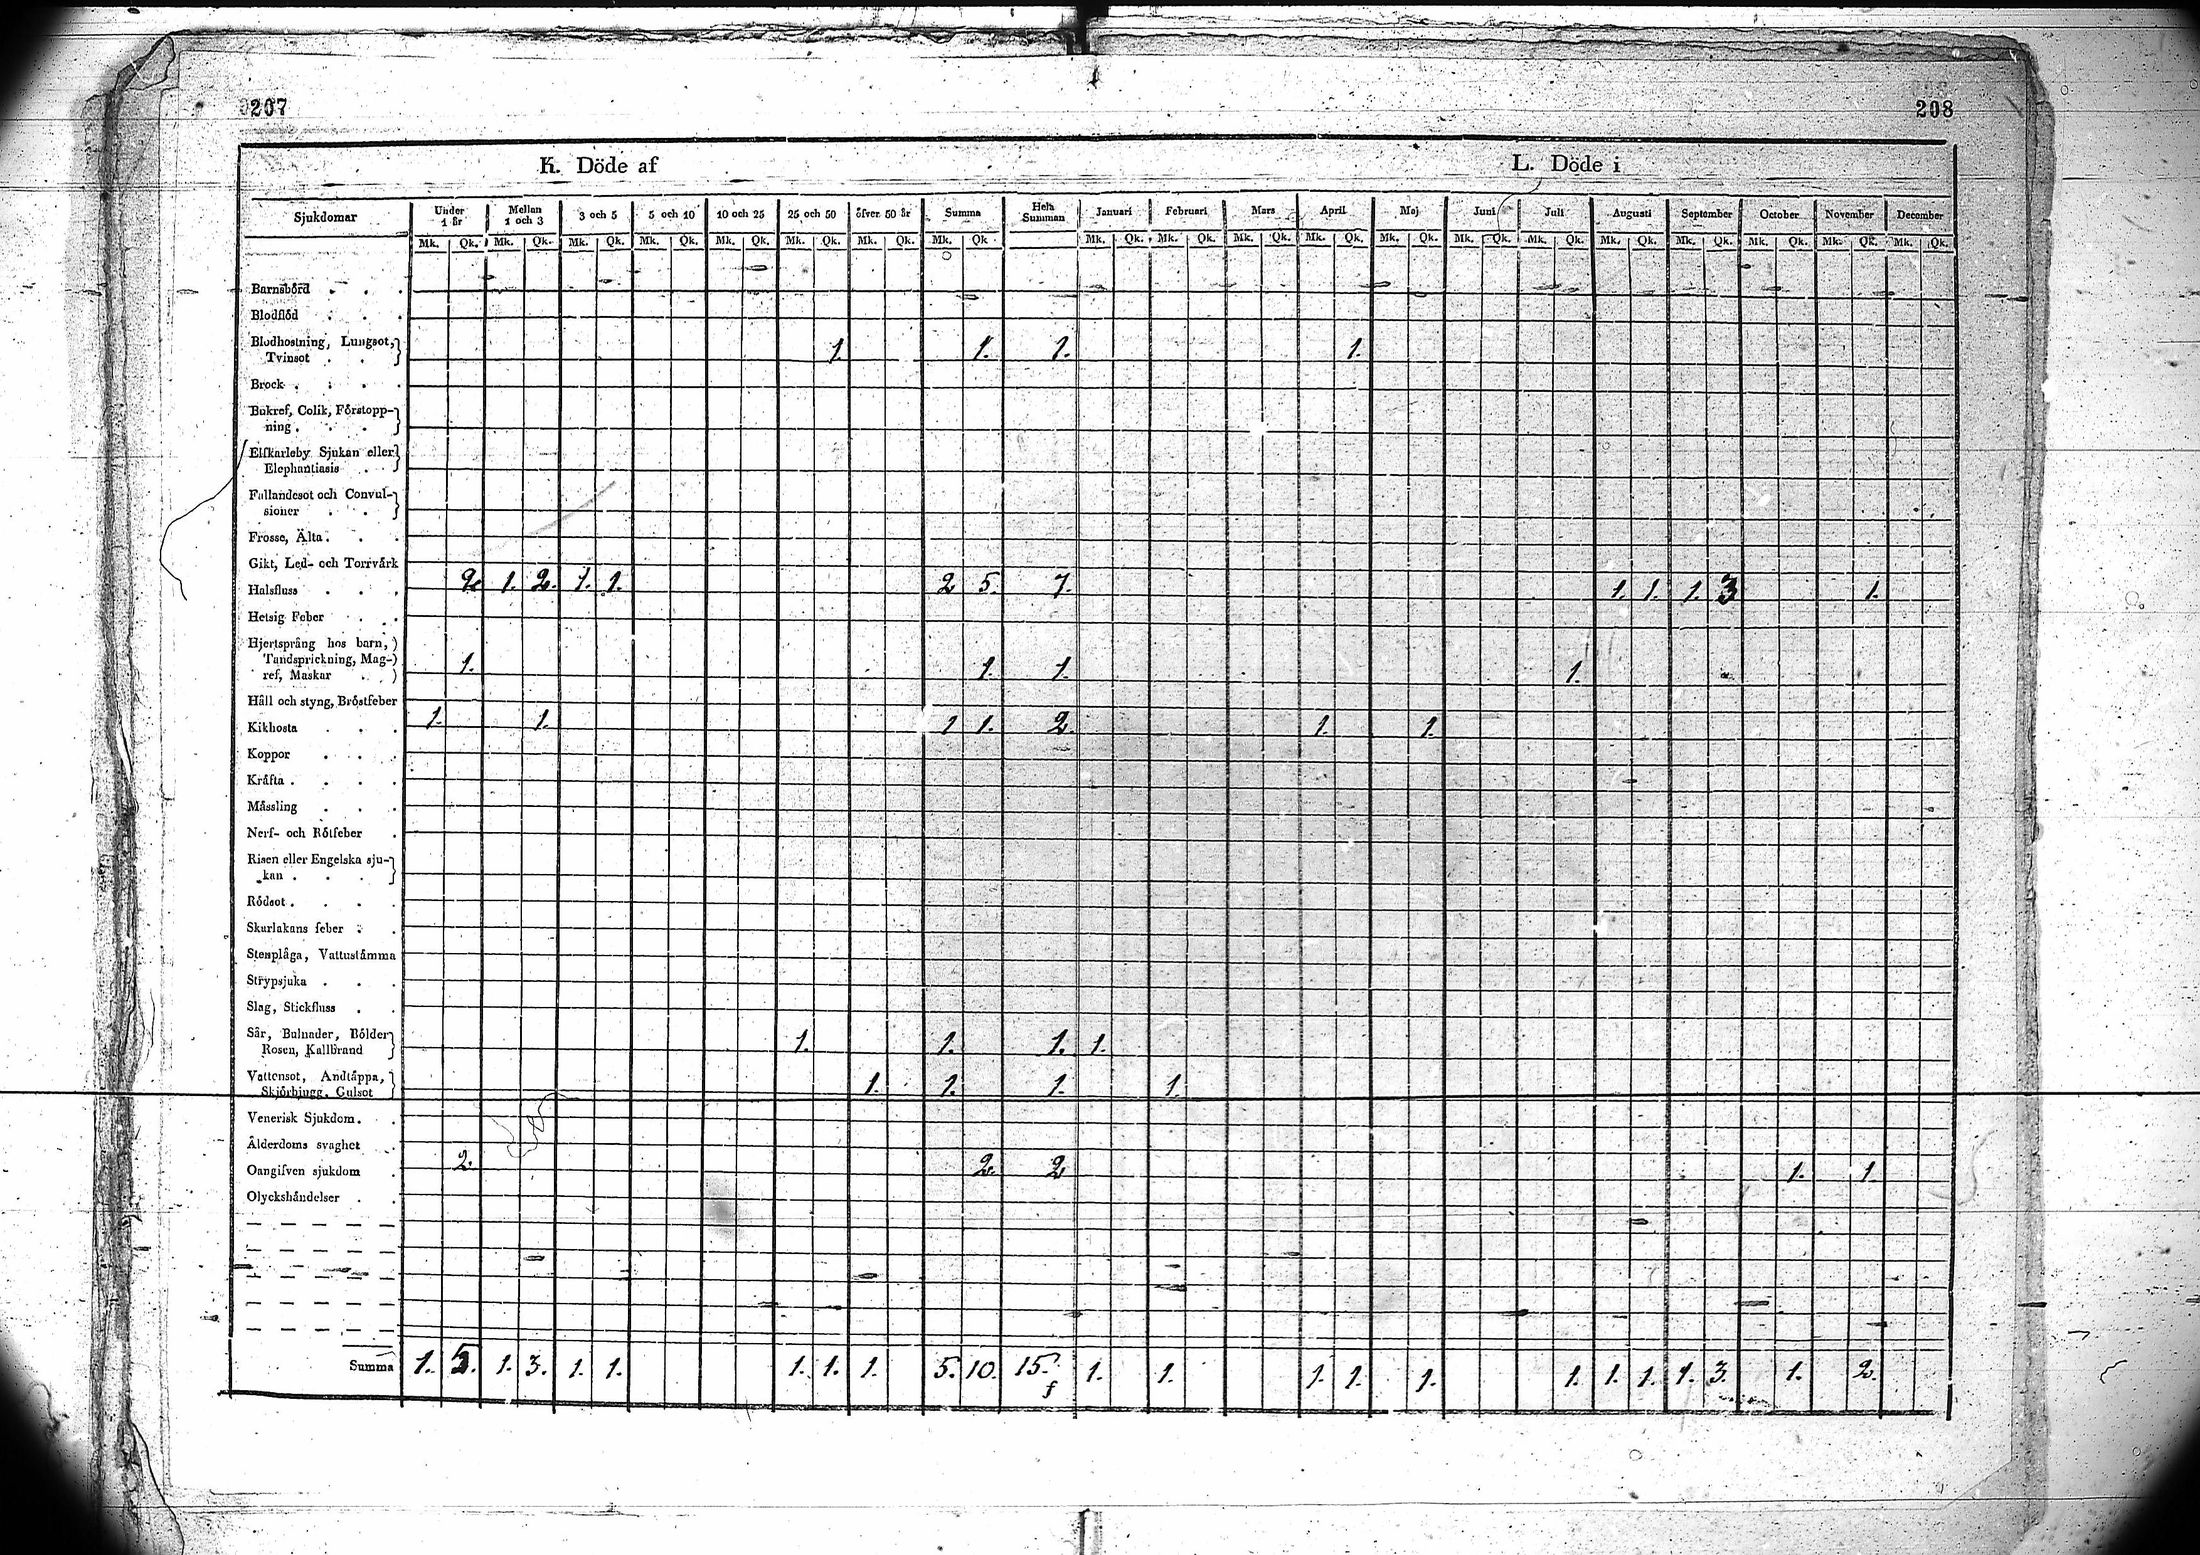 207
208
K. Döde af
L. Döde i
Sjukdomar Under 1 år Mellan 1 och 3 3 och 5 5 och 10 10 och 25 25 och 50 öfver 50 år Summa Hela Summan Januari Februari Mars April Maj Juni Juli Augusti September October November December
Mk. Qk. Mk. Qk. Mk. Qk. Mk. Qk. Mk. Qk. Mk. Qk. Mk. Qk. Mk. Qk. Mk. Qk. Mk. Qk. Mk. Qk. Mk. Qk. Mk. Qk. Mk. Qk. Mk. Qk. Mk. Qk. Mk. Qk. Mk. Qk. Mk. Qk. Mk. Qk.
Barnsbörd . . .
Blodflöd . . .
Blodhostning, Lungsot,
Tvinsot . . 1. 1. 1. 1.
Brock . . . .
Bukref, Colik, Förstopp-
ning . . .
Elfkarleby Sjukan eller
Elephantiasis .
Fallandesot och Convul-
sioner . .
Frosse, Älta . . .
Gikt, Led- och Torrvärk
Halsfluss . . . 2. 1. 2. 1. 1. 2 5. 7. 1. 1. 1. 3 1.
Hetsig Feber . .
Hjertsprång hos barn,
Tandsprickning, Mag-
ref, Maskar . 1. 1. 1. 1.
Håll och styng, Bröstfeber
Kikhosta . . . 1. 1. 1 1. 2. 1. 1.
Koppor . . .
Kräfta . . . .
Mässling . . .
Nerf- och Rötfeber .
Risen eller Engelska sju-
kan . . .
Rödsot . . . .
Skarlakans feber . .
Stenplåga, Vattustämma
Strypsjuka . . .
Slag, Stickfluss . .
Sår, Bulnader, Bölder
Rosen, Kallbrand 1. 1. 1. 1.
Vattensot, Andtäppa,
Skjörbjugg, Gulsot 1. 1. 1. 1.
Venerisk Sjukdom . .
Ålderdoms svaghet .
Oangifven sjukdom . 2. 2. 2 1. 1.
Olyckshändelser . .
Summa 1. 5. 1. 3. 1. 1. 1. 1. 1. 5. 10. 15. 1. 1. 1. 1. 1. 1. 1. 1. 1. 3. 1. 2.
f